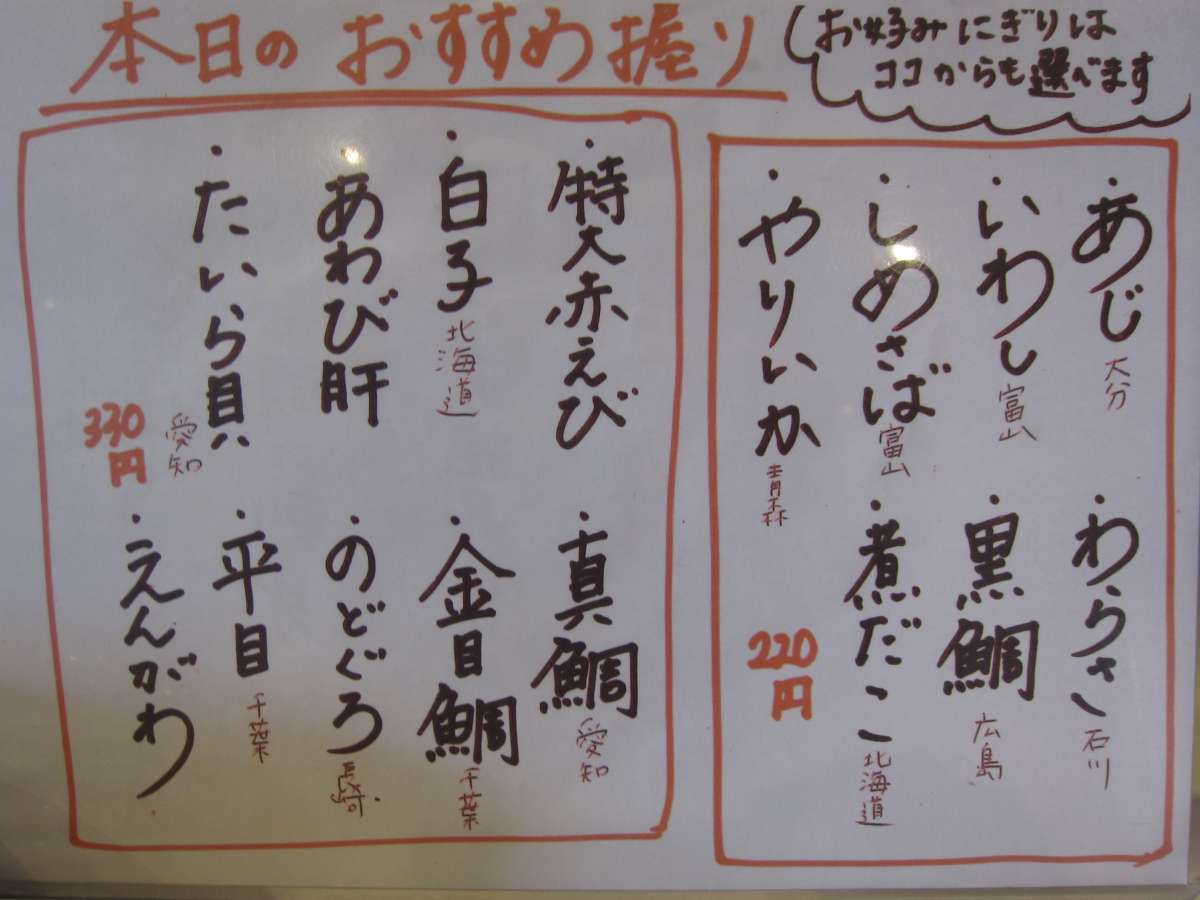 本日のおすすめ握り
お好みにぎりは
ココからも選べます
・あじ 大分
・いわし 富山
・しめさば 富山
・やりいか 青森
・わらさ 石川
・黒鯛 広島
・煮だこ 北海道
220円
・特大赤えび
・白子 北海道
・あわび肝
・たいら貝 愛知
330円
・真鯛 愛知
・金目鯛 千葉
・のどぐろ 長崎
・平目 千葉
・えんがわ